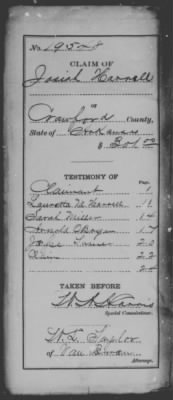 No. 19528
CLAIM OF
Josiah Harrell
OF
Crawford County,
State of Arkansas
$ 301.00
TESTIMONY OF
Page.
Claimant 1
Lauretta M Harrell 11
Sarah Miller 14
Arnold C 17
Jesse Turner 20
22
24
TAKEN BEFORE
Special Commissioner.
W. L. Taylor
of Van Buren
Attorney.